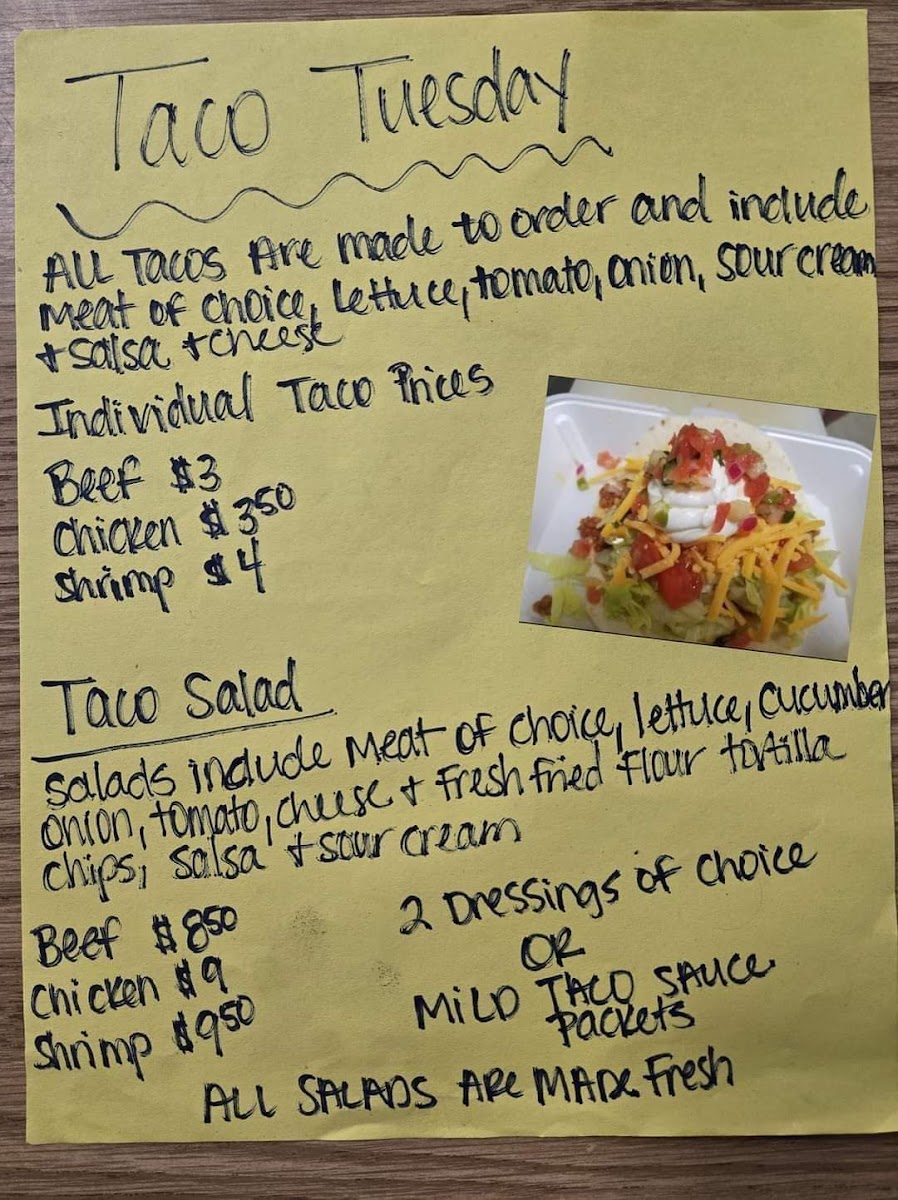 Taco Tuesday
ALL TACOS Are made to order and include
meat of choice, lettuce, tomato, onion, sour cream
+ salsa + cheese
Individual Taco Prices
Beef $3
Chicken $350
Shrimp $4
Taco Salad
Salads include meat of choice, lettuce, cucumber
onion, tomato, cheese + fresh fried flour tortilla
chips, salsa + sour cream
Beef $850
Chicken $9
Shrimp $950
2 Dressings of choice
OR
MILD TACO SAUCE
Packets
ALL SALADS ARe MADe Fresh